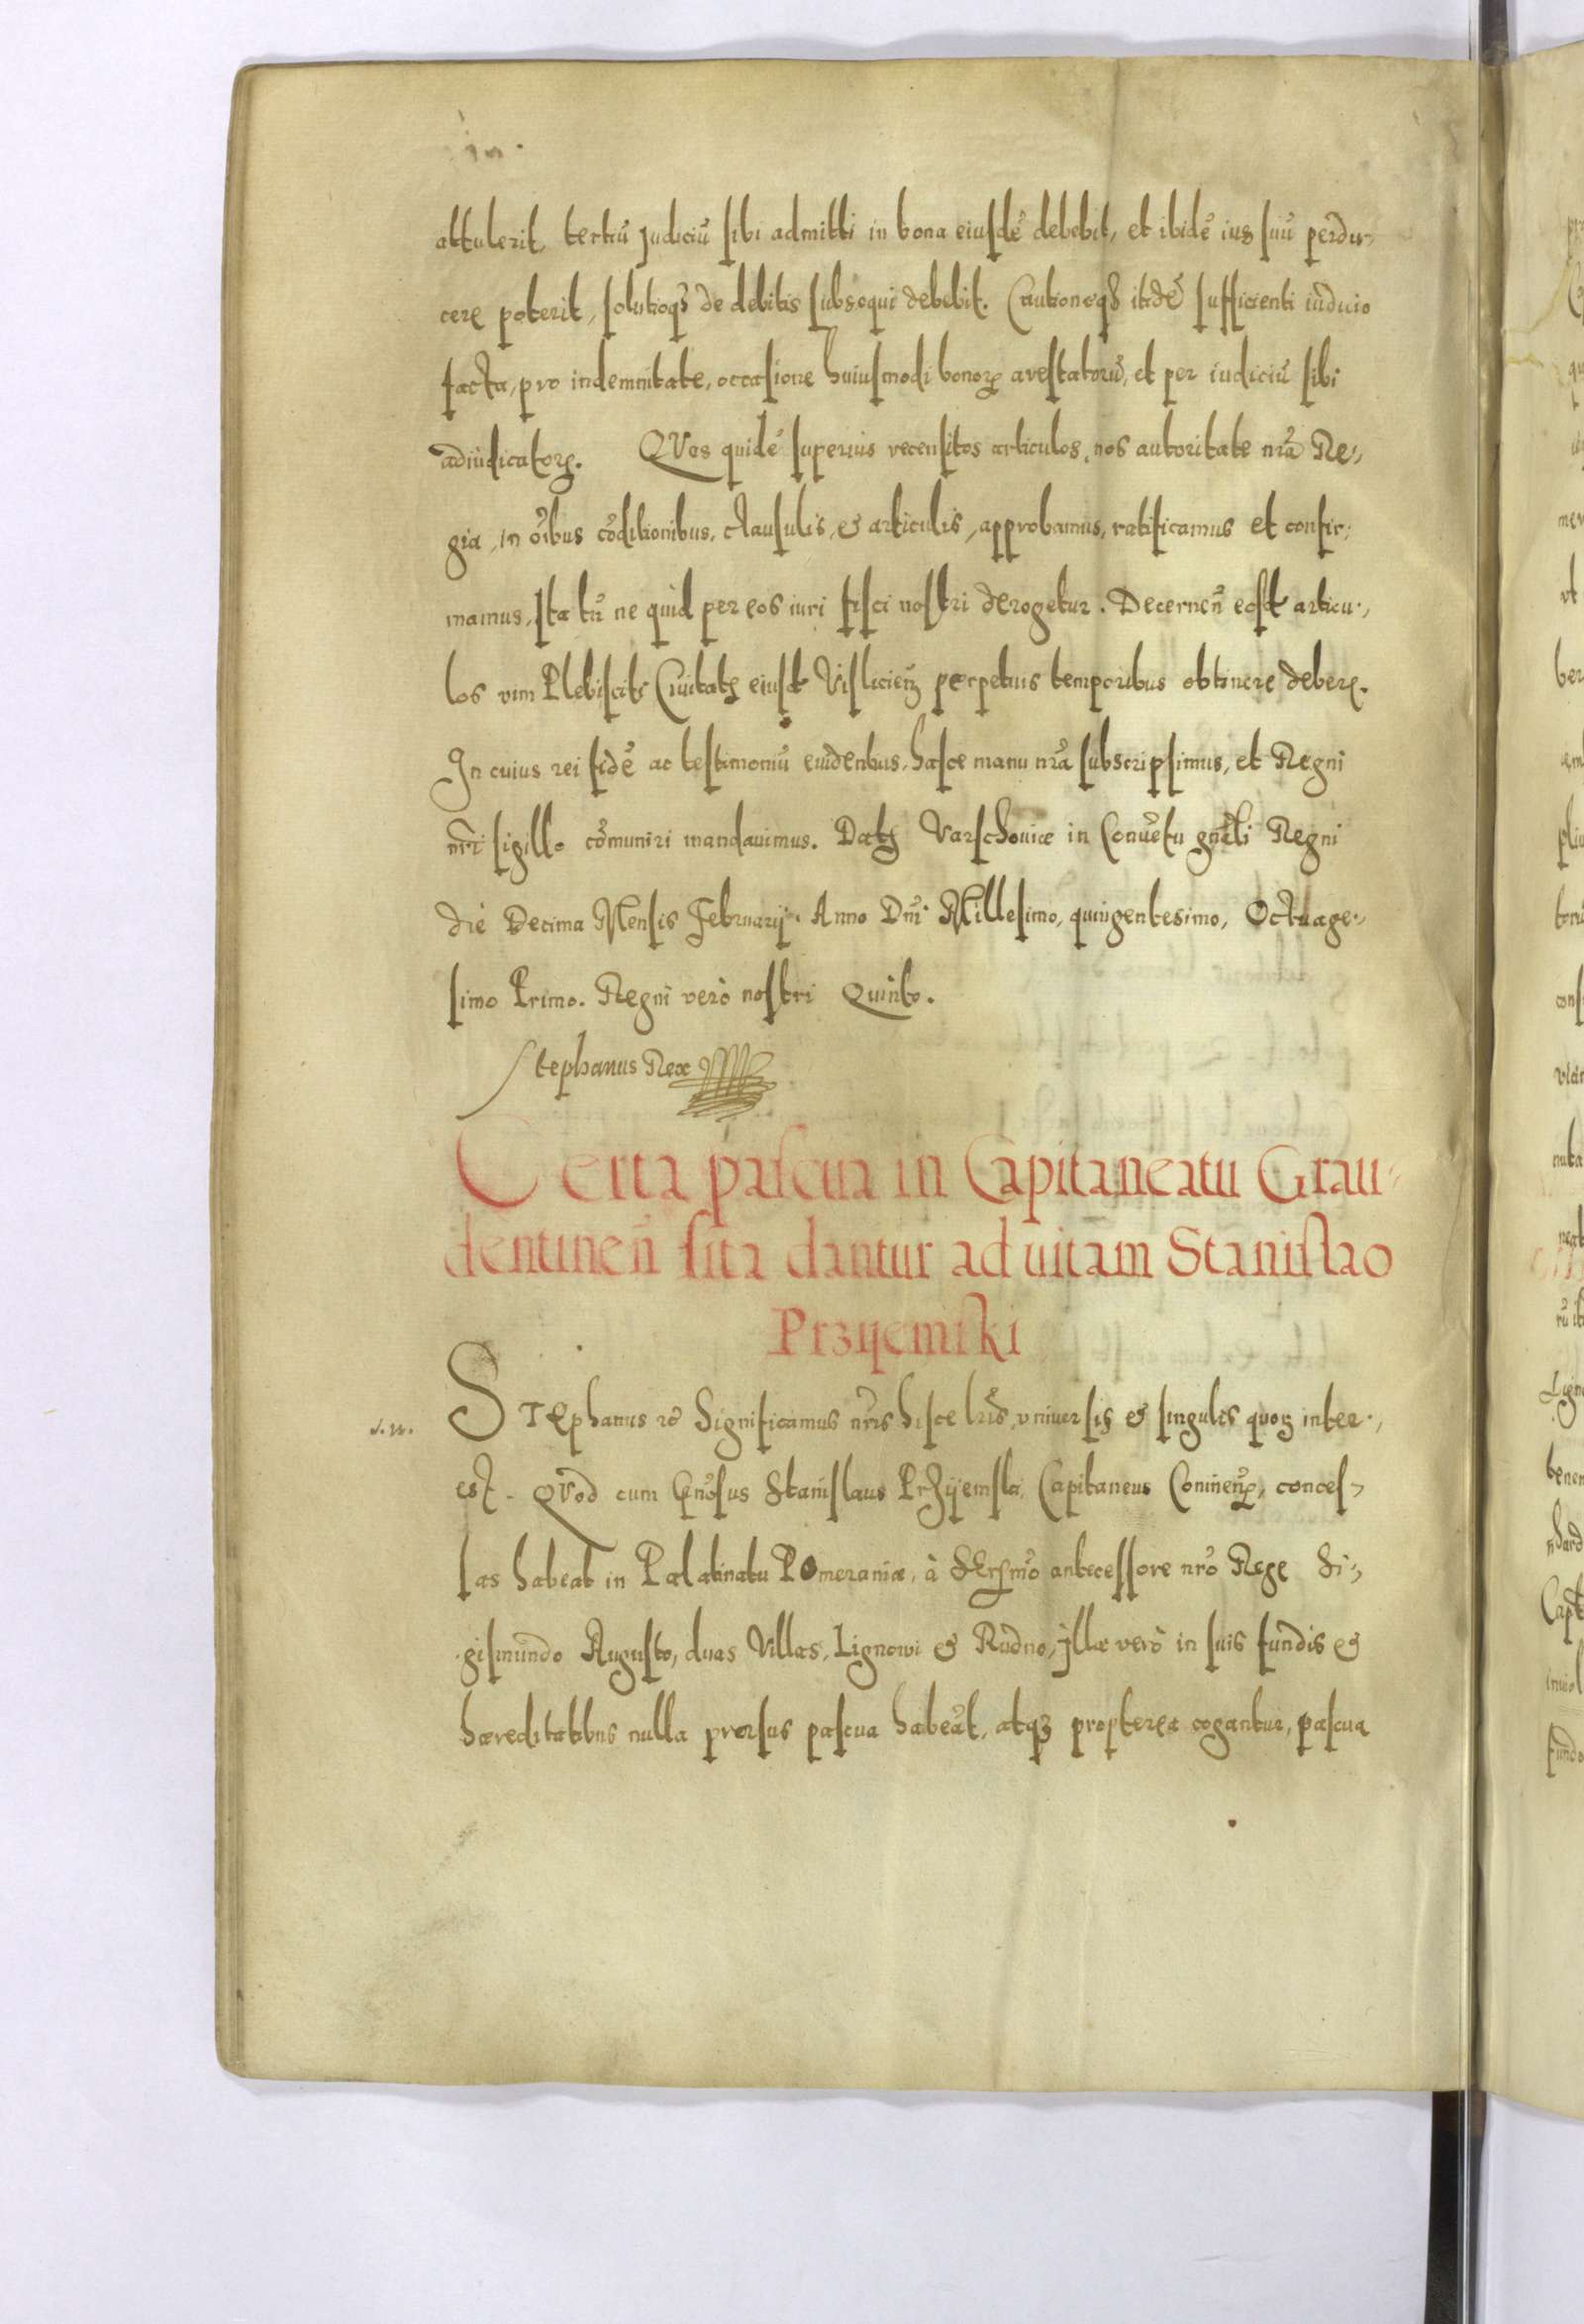 attulerit tertiũ Judiciũ sibi admitti in bona eiusdẽ debebit, et ibidẽ ius suũ perdu-
cere poterit, solutioq3 de debitis subsequi debebit. Cautioneq3 itidẽ sufficienti iudicio
facta, pro indemnitate, occasione huiusmodi bonorꝝ arestatorũ, et per iudiciũ sibi
adiudicatorꝝ. QVos quidẽ superius recensitos articulos, nos autoritate nrã Re-
gia, in oĩbus cõditionibus, clausulis, & articulis, approbamus, ratificamus et confir-
mamus, Ita tñ ne quid per eos iuri fisci nostri derogetur. Decernen̄ eosd articu-
los vim Plebisciti Ciuitatꝭ eiusd Vislicien̄ perpetuis temporibus obtinere debere.
In cuius rei fidẽ ac testimoniũ euidentius, hasce manu nrã subscripsimus, et Regni
nrĩ sigillo cõmuniri mandauimus. Datꝭ Varschouiæ in Conuẽtu gnẽli Regni
die Decima Mensis Februarij. Anno Dnĩ Millesimo, quingentesimo, Octuage-
simo Primo. Regni verò nostri Quinto.
Stephanus Rex
Certa pascua in Capitaneatu Grau-
dentinen̄ sita dantur ad uitam Stanislao
Przyemski
STephanus &c Significamus nrĩs hisce lrĩs, vniuersis & singulis quorꝝ inter-
est. QVod cum Gnõsus Stanislaus Przÿemski, Capitaneus Coninen̄, conces-
sas habeat in Palatinatu Pomeraniæ, à Serſmõ antecessore nrõ Rege Si-
gismundo Augusto, duas Villas, Lignowi & Rudno, Illæ verò in suis fundis &
hæreditatibus nulla prorsus pascua habeãt, atq3 propterea cogantur, pascua